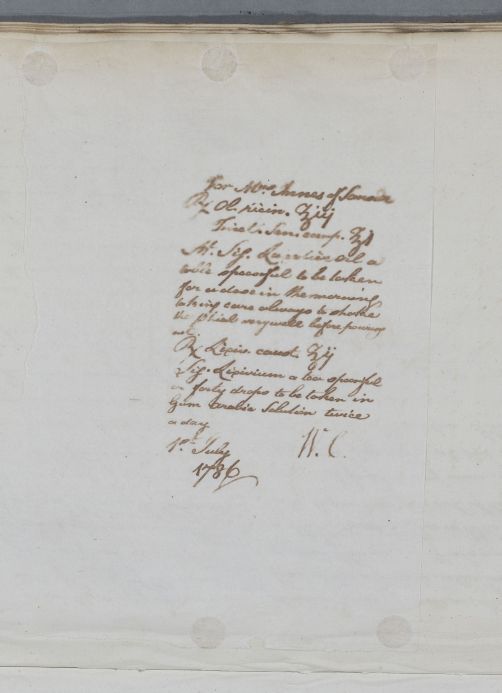 For Mrs. Innes of Sandside
Rx Ol. ricin. ℥iij
Tinct. Sennæ comp. ℥j
M. Sig. Laxative Oil a
table spoonful to be taken
for a dose in the morning
taking care always to shake
the phial very well before pouring
out.
Rx Lixiv. caust. ℥ij
Sig. Lixivium a tea spoonful
or forty drops to be taken in
Gum arabic Solution twice
a day
1st July
1786
W. C.